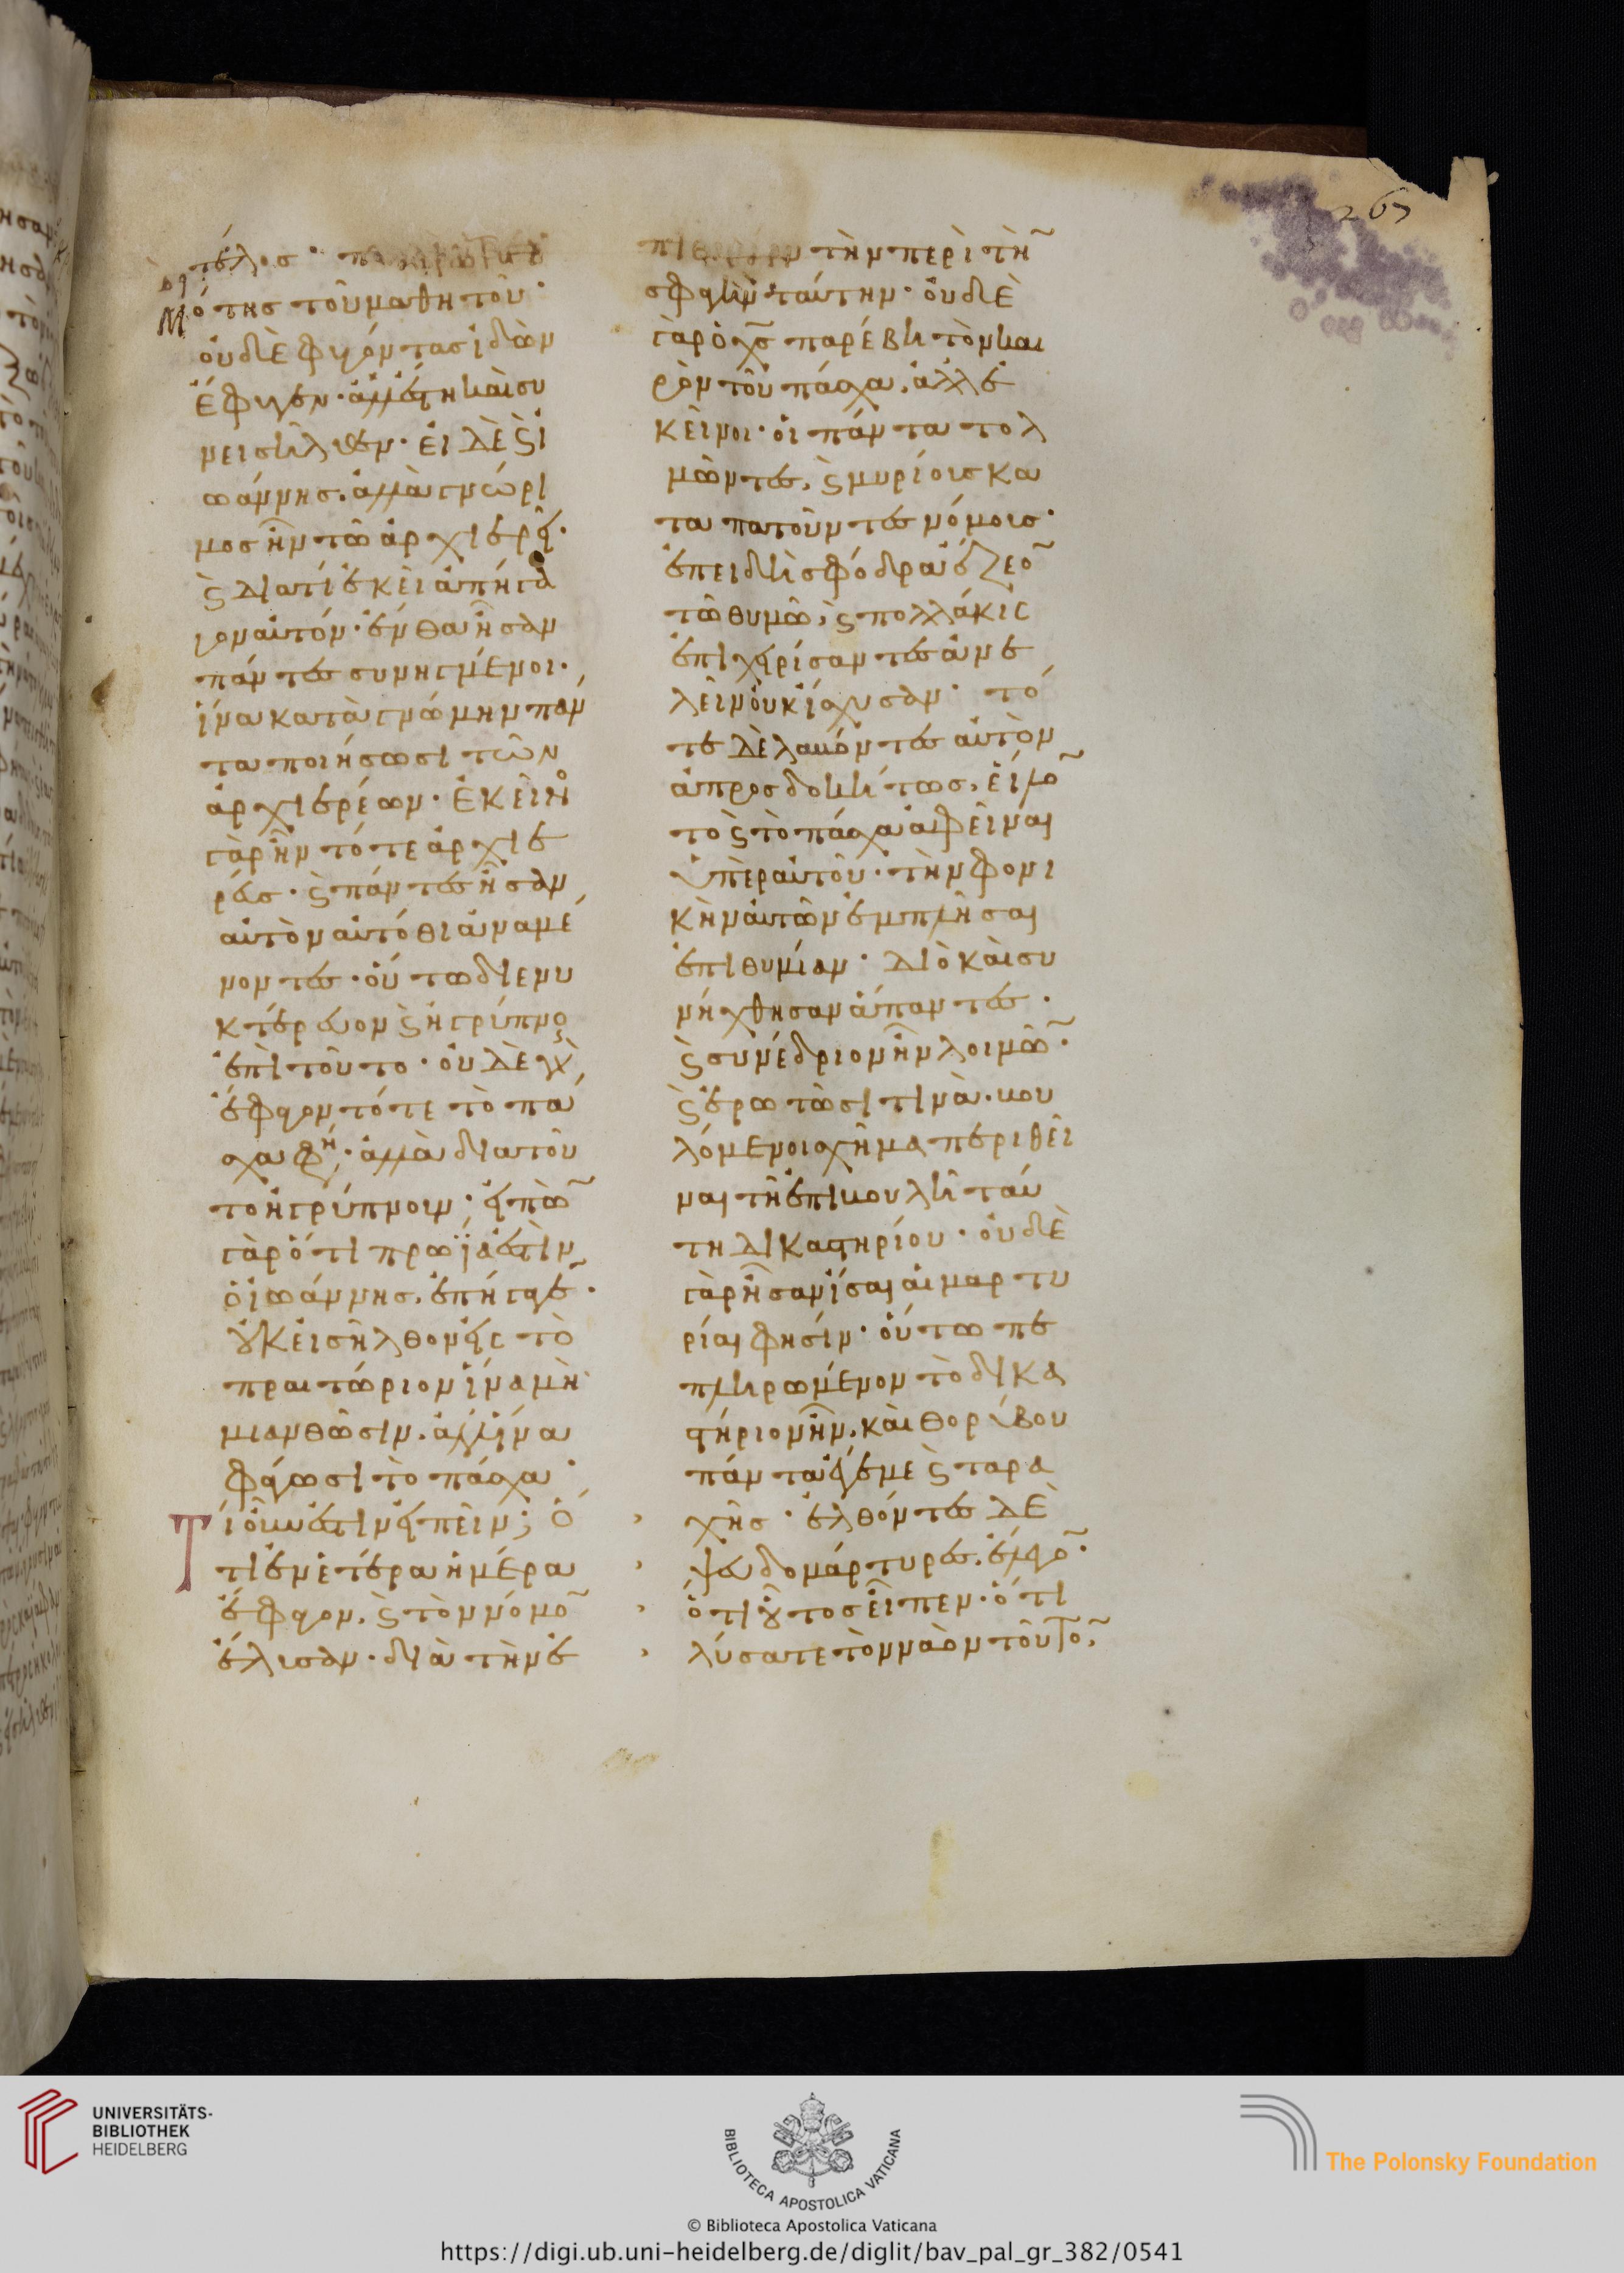 τέλος·
μότης τοῦ μαθητοῦ·
οὐδὲ φυγόντας ἰδὼν
ἔφυγεν· ἀλλ' ἔστη καὶ συ
νεισῆλθεν· εἰ δὲ ϛ ἰ
ωάννης· ἀλλὰ γνώρι
μος ἦν τῶ ἀρχιερεῖ·
ϛ διατί ἐκεῖ ἀπήγα
γον αὐτόν· ἔνθα ἦσαν
πάντες συνηγμένοι·
ἵνα κατὰ γνώμην πάν
τα ποιήσωσι τῶν
ἀρχιερέων· ἐκεῖνο
γὰρ ἦν τότε ἀρχιε
ρεύς· ϛ πάντες ἦσαν
αὐτὸν αὐτόθι ἀναμέ
νοντες· οὕτω διενυ
κτέρευον ϛ ἠγρύπνου
ἐπὶ τοῦτο· οὐδὲ γὰρ
ἔφαγον τότε τὸ πά
σχα φη· ἀλλὰ διὰ τοῦ
το ἠγρύπνουν· εἰπὼ
γὰρ ὅτι πρωΐα ἐστὶν
ὁ ἰωάννης, ἐπήγαγε
οὐκ εἰσῆλθον εἰς τὸ
πραιτώριον ἵνα μὴ
μιανθῶσιν· ἀλλ' ἵνα
φάγωσι τὸ πάσχα·
Τί οὖν ἐστιν εἰπεῖν; ὅ
τι ἐν ἑτέρα ἡμέρα
ἔφαγον, ϛ τὸν νόμο
ἔλυσαν· διὰ τὴν ἐ
πιθυμίαν τὴν περὶ τὴ
σφαγὴν ταύτην· οὐδὲ
γὰρ ὁ χς παρέβη τὸν και
ρὸν τοῦ πάσχα, ἀλλ' ἐ
κεῖνοι· οἱ πάντα τολ
μῶντες, ϛ μυρίοις κα
ταπατοῦντες νόμοις·
ἐπειδὴ σφόδρα ἔζεο
τῶ θυμῶ, ϛ πολλάκις
ἐπιχειρίσαντες ἀνε
λεῖν οὐκ ἴσχυσαν· τό
τε δὲ λαβόντες αὐτὸν
ἀπροσδοκήτως, εἵλο
το ϛ τὸ πάσχα ἀφεῖναι
ὑπὲρ αὐτοῦ· τὴν φονι
κὴν αὐτῶν ἐμπλῆσαι
ἐπιθυμίαν· διὸ καὶ συ
νήχθησαν ἅπαντες·
ϛ συνέδριον ἦν λοιμῶ·
ϛ ἐρωτῶσι τινὰ· βου
λόμενοι σχῆμα περιθεῖ
ναι τῆ ἐπιβουλῆ ταύ
τη δικαστηρίου· οὐδὲ
γὰρ ἦσαν ἴσαι αἱ μαρτυ
ρίαι φησίν· οὕτω πε
πληρωμένον τὸ δικα
στήριον ἦν, καὶ θορύβου
πάντα ἔγεμε ϛ ταρα
χῆς· ἐλθόντες δὲ
ψευδομάρτυρες, ἔλεγο·
ὅτι οὗτος εἶπεν· ὅτι
λύσατε τὸν ναὸν τοῦτο,
267
UNIVERSITÄTS-
BIBLIOTHEK
HEIDELBERG
BIBLIOTECA APOSTOLICA VATICANA
The Polonsky Foundation
© Biblioteca Apostolica Vaticana
https://digi.ub.uni-heidelberg.de/diglit/bav_pal_gr_382/0541